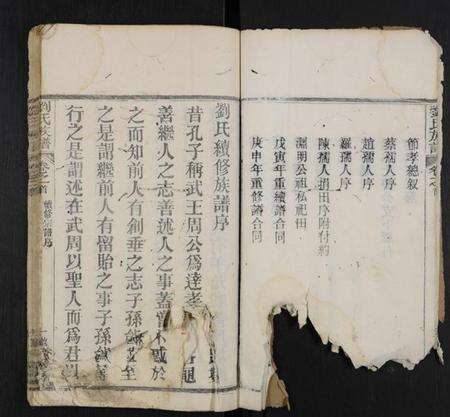 劉氏族譜 卷之首
節孝總叙
蔡孺人序
趙孺人序
羅孺人序
陳孺人捐田序附付約
淵明公祖私祀田
戊寅年重續譜合同
庚申年重修譜合同
劉氏續修族譜序
昔孔子稱武王周公爲達孝
善繼人之志善述人之事蓋嘗不或於
之而知前人有創垂之志子孫
至
之是謂繼前人有貽之事子孫
行之是謂述在武周以聖人而為君
劉氏族譜 卷之首 續修族譜序